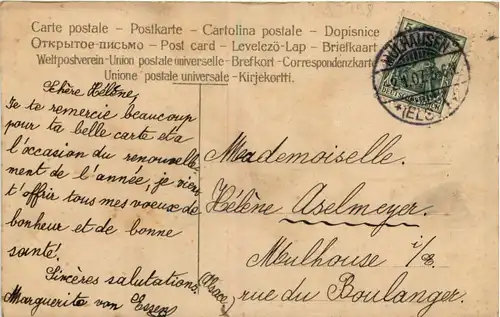 Carte postale - Postkarte - Cartolina postale - Dopisnice
Открытое-письмо - Post card - Levelezö-Lap - Briefkaart
Weltpostverein - Union postale universelle - Brefkort - Correspondenzkarte
Unione postale universale - Kirjekortti.
MÜLHAUSEN
Chère Hélène,
Je te remercie beaucoup
pour ta belle carte et a
l'occasion du renouvelle-
ment de l'année, je viens
t'offrir tous mes voeux de
bonheur et de bonne
santé.
Sincères salutations
Marguerite von Essen
Mademoiselle.
Hélène Aselmeyer.
Mulhouse i/E.
Alsace
rue du Boulanger.